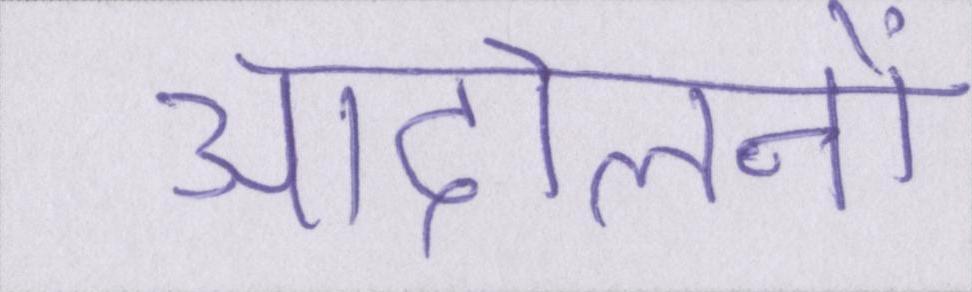 आदोलनों